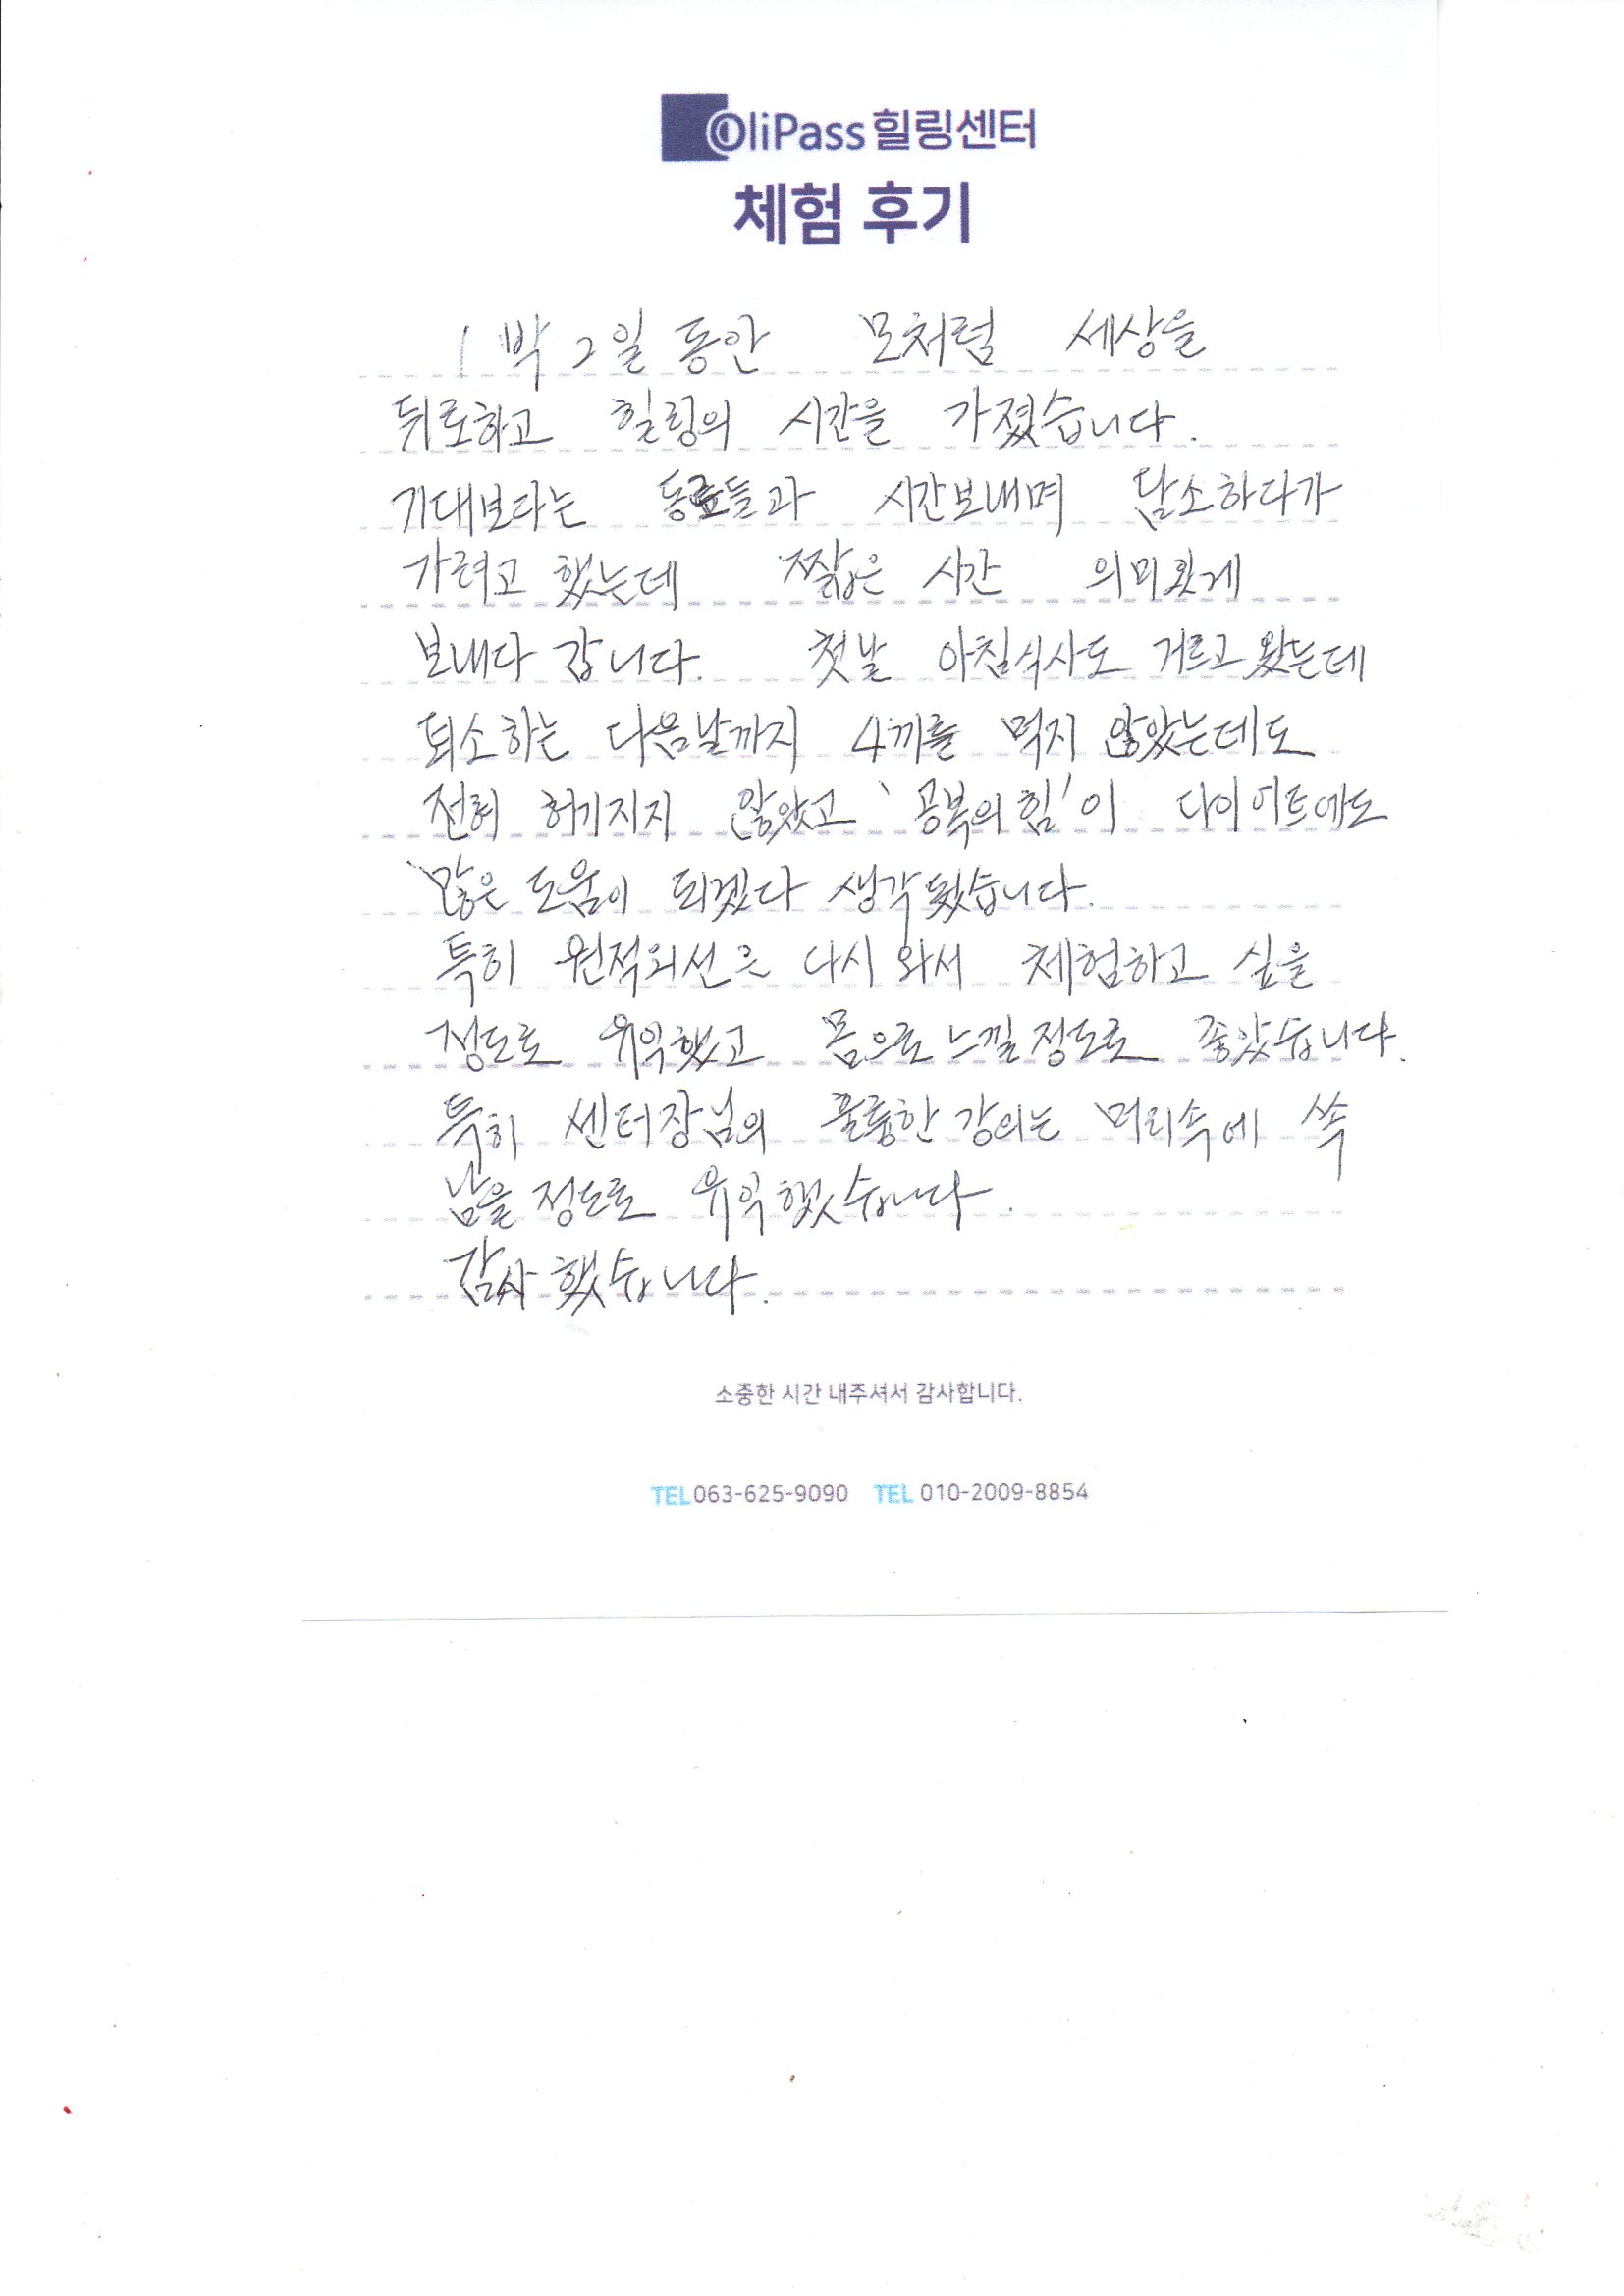 OliPass 힐링센터
체험 후기
1박 2일 동안 모처럼 세상을
뒤로하고 힐링의 시간을 가졌습니다.
기대보다는 동료들과 시간보내며 담소하다가
가려고 했는데 짧은 시간 의미있게
보내다 갑니다. 첫날 아침식사도 거르고 왔는데
퇴소하는 다음날까지 4끼를 먹지 않았는데도
전혀 허기지지 않았고 '공복의 힘'이 다이어트에도
많은 도움이 되겠다 생각됐습니다.
특히 원적외선은 다시 와서 체험하고 싶을
정도로 유익했고 몸으로 느낄 정도로 좋았습니다.
특히 센터장님의 훌륭한 강의는 머리속에 쏙
남을 정도로 유익했습니다.
감사했습니다.
소중한 시간 내주셔서 감사합니다.
TEL 063-625-9090 TEL 010-2009-8854